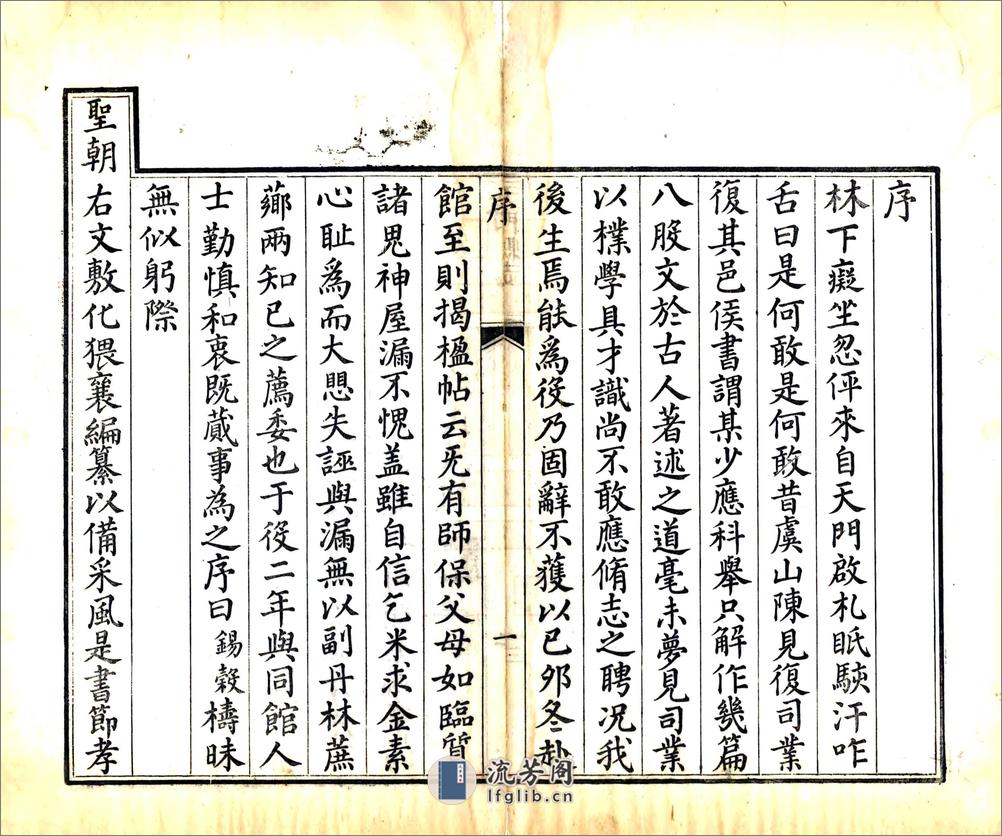 序
林下癡坐忽伻來自天門啟札眂駚汗咋
舌曰是何敢是何敢昔虞山陳見復司業
復其邑侯書謂某少應科舉只解作幾篇
八股文於古人著述之道毫未夢見司業
以樸學具才識尚不敢應脩志之聘況我
後生焉能為役乃固辭不獲以已夘冬赴
序
一
館至則揭楹帖云旡有師保父母如臨質
諸鬼神屋漏不愧盖雖自信乞米求金素
心耻為而大愳失誣與漏無以副丹林蔗
薌兩知已之薦委也于役二年與同館人
士勤慎和衷既蕆事為之序曰錫穀檮昧
無似躬際
聖朝右文敷化猥襄編纂以備采風是書節孝
流芳阁
lfglib.cn